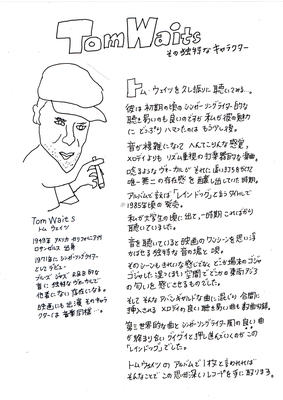 Tom Waits
その独特なキャラクター
トム・ウェイツを久し振りに聴いてみる…。
彼は初期の頃のシンガーソングライター的な
聴き易いのも良いのだが私が彼の魅力
にどっぷりハマったのはもう少し後。
音が複雑になって へんてこりんな感覚、
メロディよりもリズム重視の打楽器的な音像。
唸るようなヴォーカルがそれに追いまちをかけて
唯一無二の存在感を醸し出していた時期。
アルバムで言えば「レインドッグ」と言うタイトルで
1985年頃の発売。
私が大学生の頃に出て、一時期こればかり
聴いていました。
音を聴いていると映画のワンシーンを思い浮
かばせる独特な音の塊と唄。
そのシーンもきれいな感じでなくどこか場末のゴチャ
ゴチャした湿っぽい空間でどこか東南アジア
の匂いを感じさせるものでした。
そしてそんなアバンギャルドな曲に混ざり合間に
挿入されるメロディの良い聴き易い曲も数曲収録。
第三世界的な曲とシンガーソングライター風の良い曲
が絡まり合いグイグイと押し進んでいくのがこの
「レインドッグ」でした。
トムウェイツのアルバムで1枚と言われれば
そんなことでこの思い出深いレコードをすぐに取ります。
Tom Waits
トム ウェイツ
1949年 アメリカ カリフォルニア州
ロサンゼルス 出身
1971年にシンガーソングライター
としてデビュー
ブルース ジャズ R&B 的な
音に独特なヴォーカルで
他者にない存在になる。
映画にも出演 そのキャラ
クターは音楽同様…。